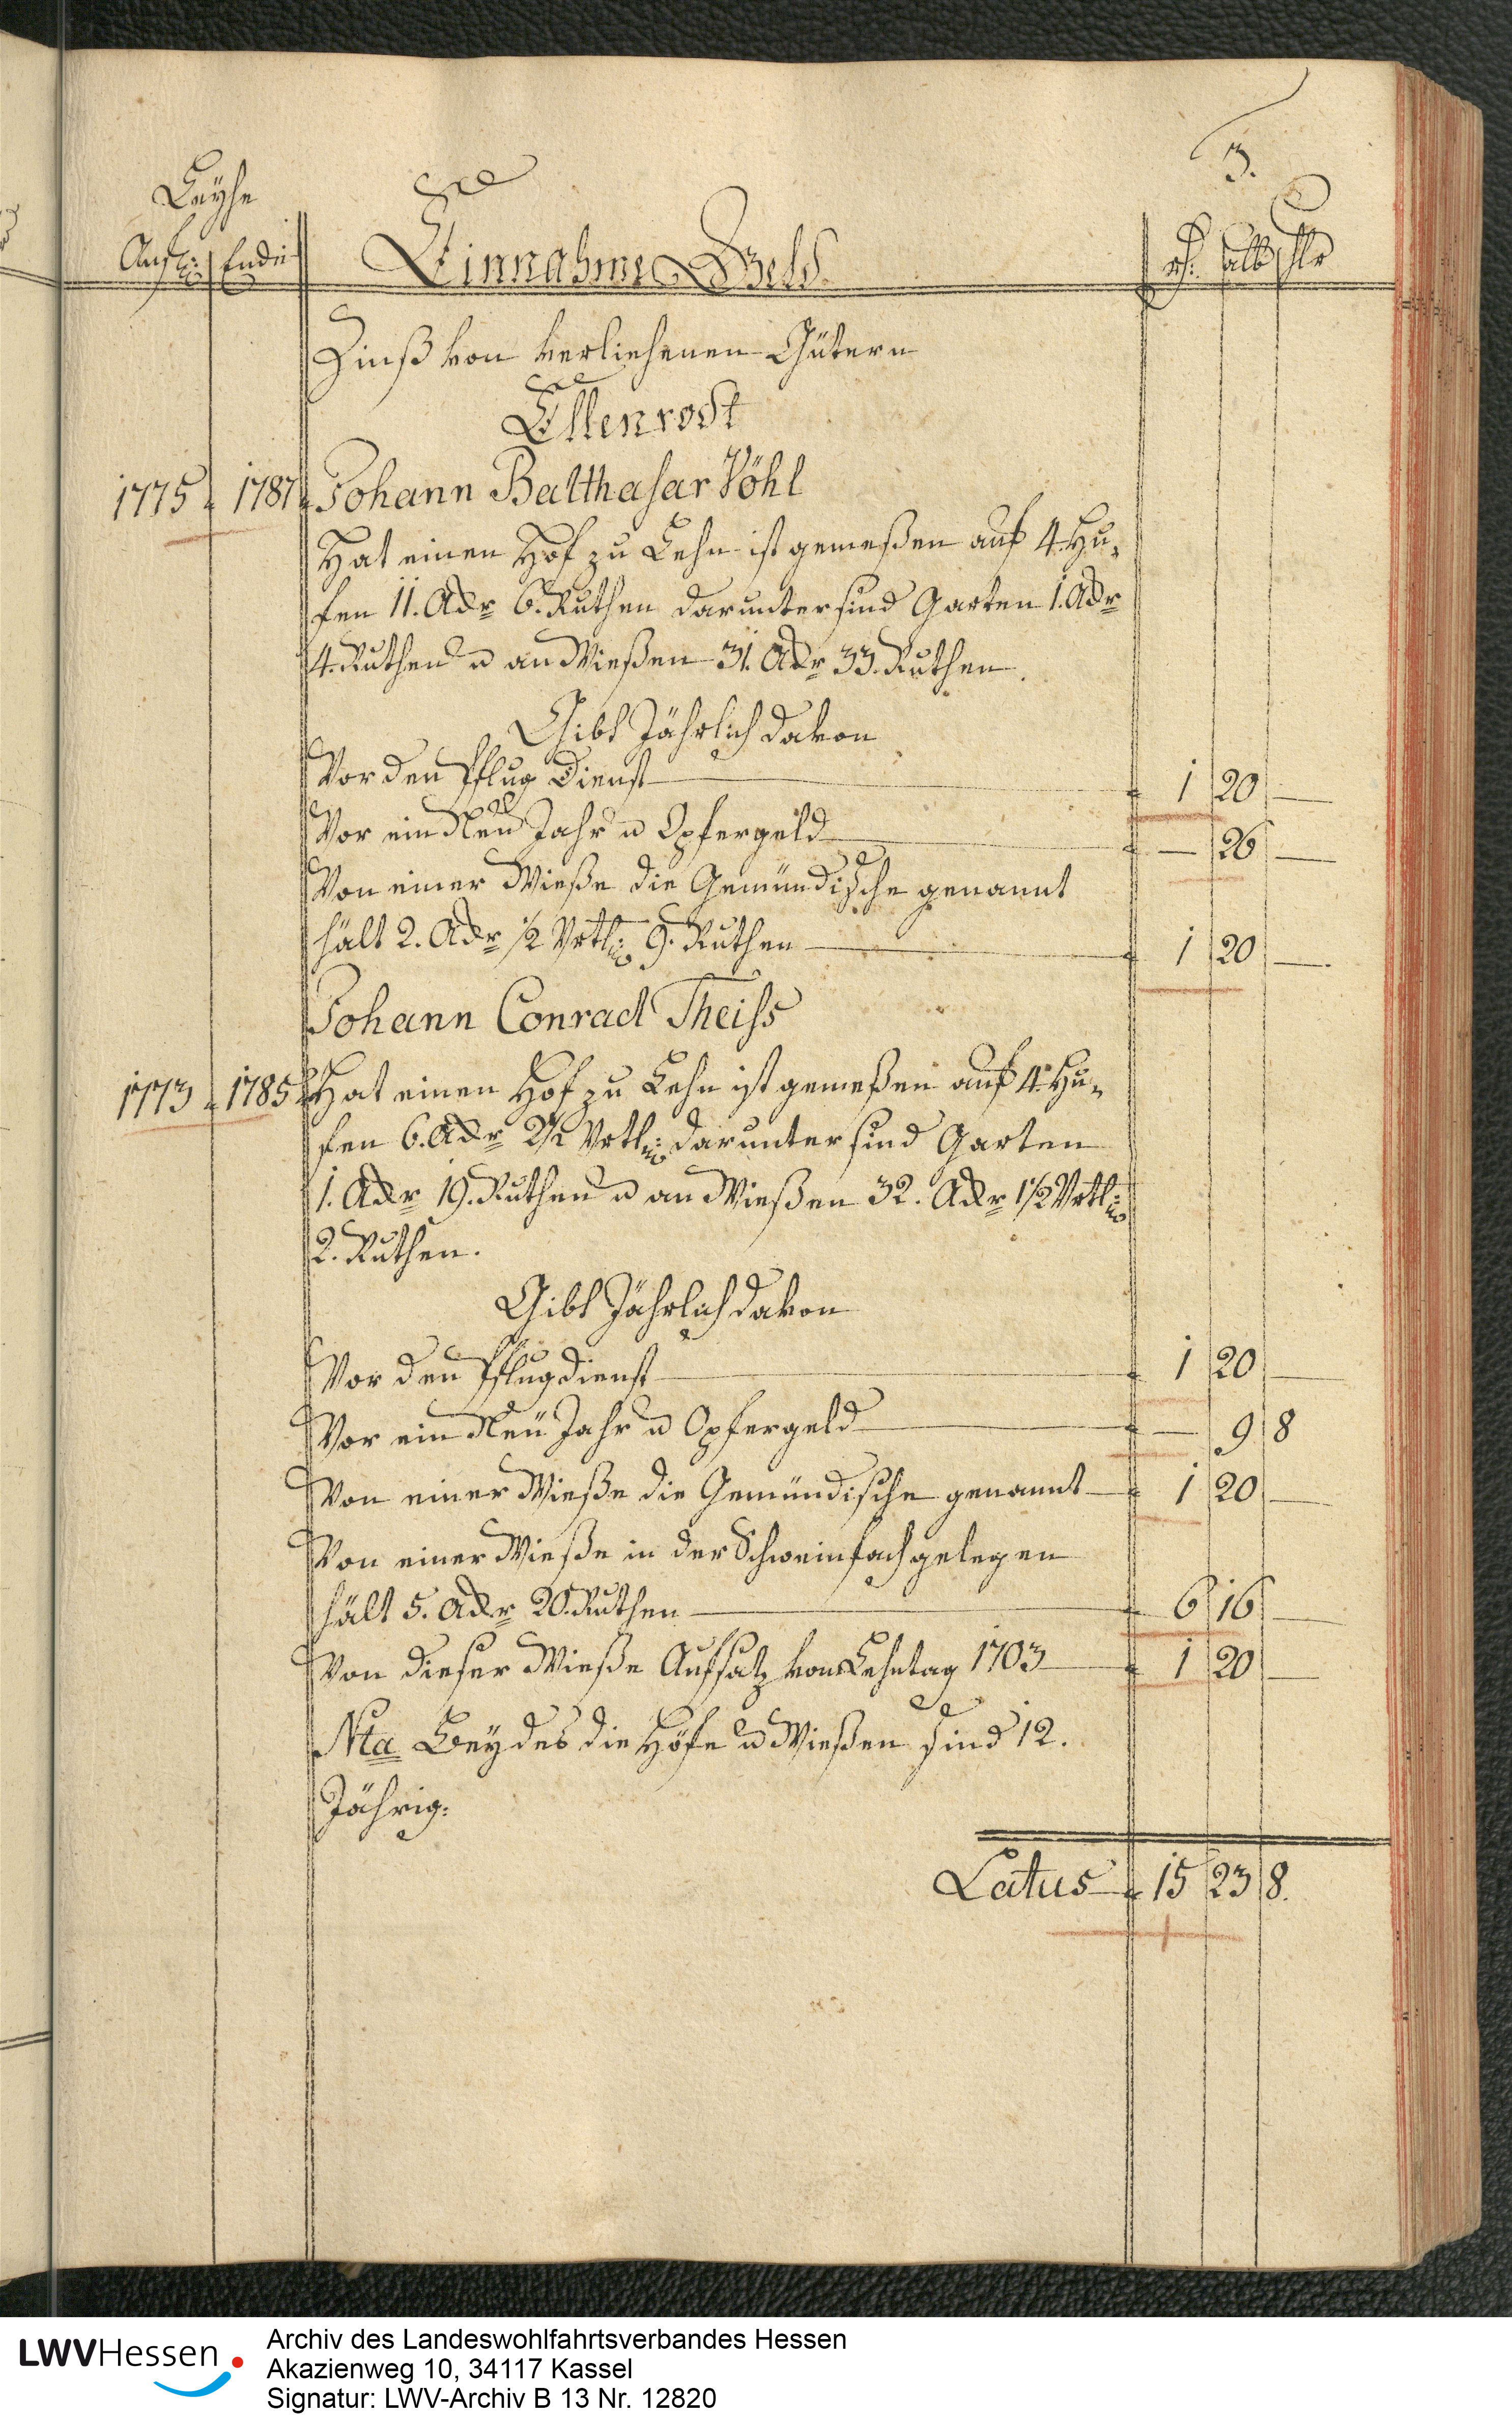 3.
Leyhe
Anf: Ende Einnahme Geld rh: alb hlr
Zinß von verliehenen Gütern
Ellenrodt
1775 1787 Johann Balthasar Vöhl
Hat einen Hof zu Lehn ist gemeßen auf 4. Hu-
fen 11. Adr 6. Ruthen darunter sind Garten 1. Adr
4. Ruthen u an Wießen 31. Adr 33. Ruthen.
Gibt Jährlich davon
Vor den Pflug Dienst 1 20 —
Vor ein Neu Jahr u Opfergeld — 26 —
Von einer Wieße die Gemündische genannt
hält 2. Adr 1/2 Vrtl: 9. Ruthen 1 20 —
Johann Conrad Theiss
1773 1785 Hat einen Hof zu Lehn ist gemeßen auf 4. Hu-
fen 6. Adr 2 1/2 Vrtl: darunter sind Garten
1. Adr 19. Ruthen u an Wießen 32. Adr 1 1/2 Vrtl:
2. Ruthen.
Gibt Jährlich davon
Vor den Pflugdienst 1 20 —
Vor ein Neu Jahr u Opfergeld — 9 8
Von einer Wieße die Gemündische genannt 1 20 —
Von einer Wieße in der Schweinfach gelegen
hält 5. Adr 20. Ruthen 6 16 —
Von dieser Wieße Aufsatz vom Lehntag 1703 1 20 —
Nta Beydes die Höfe u Wießen sind 12.
Jährig.
Latus 15 23 8.
LWVHessen
Archiv des Landeswohlfahrtsverbandes Hessen
Akazienweg 10, 34117 Kassel
Signatur: LWV-Archiv B 13 Nr. 12820